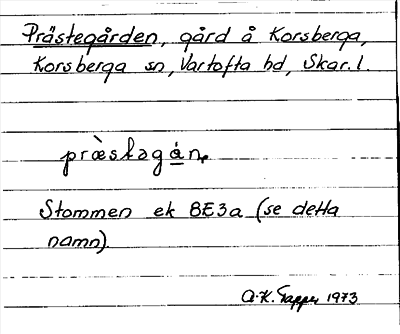 Prästegården, gård å Korsberga,
Korsberga sn, Vartofta hd, Skar. l.
præ̀stəgá̱ṇ
Stommen ek 8E3a (se detta
namn)
A.K. Tapper 1973